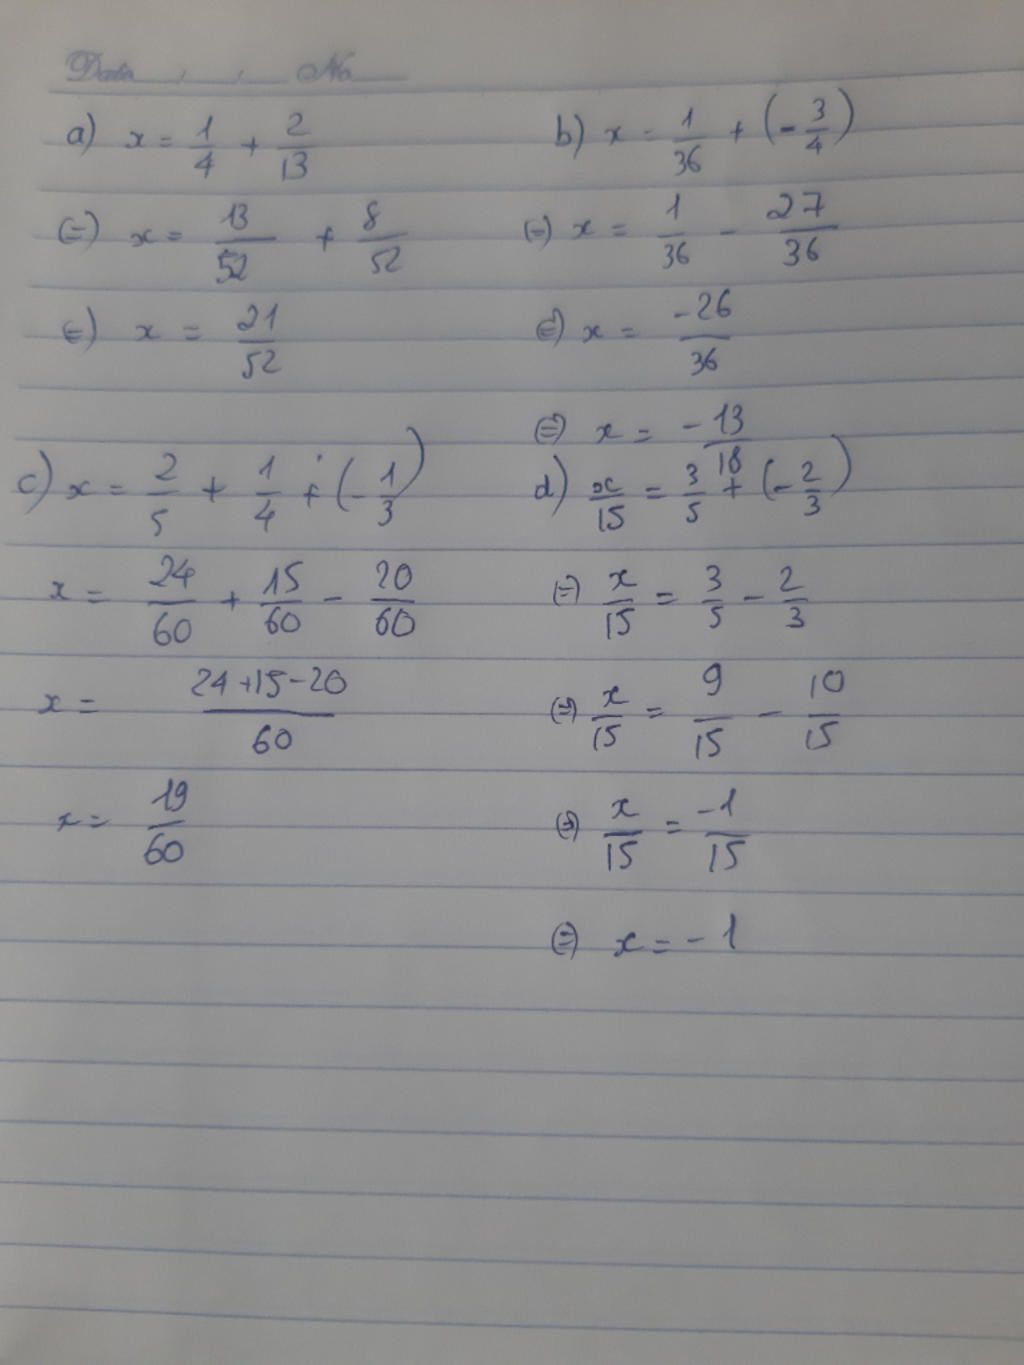 Date , , No
a) x = 1/4 + 2/13
(=) x = 13/52 + 8/52
(=) x = 21/52
b) x = 1/36 + (-3/4)
(=) x = 1/36 - 27/36
(=) x = -26/36
(=) x = -13/18
c) x = 2/5 + 1/4 + (-1/3)
x = 24/60 + 15/60 - 20/60
x = 24+15-20/60
x = 19/60
d) x/15 = 3/5 + (-2/3)
(=) x/15 = 3/5 - 2/3
(=) x/15 = 9/15 - 10/15
(=) x/15 = -1/15
(=) x = -1